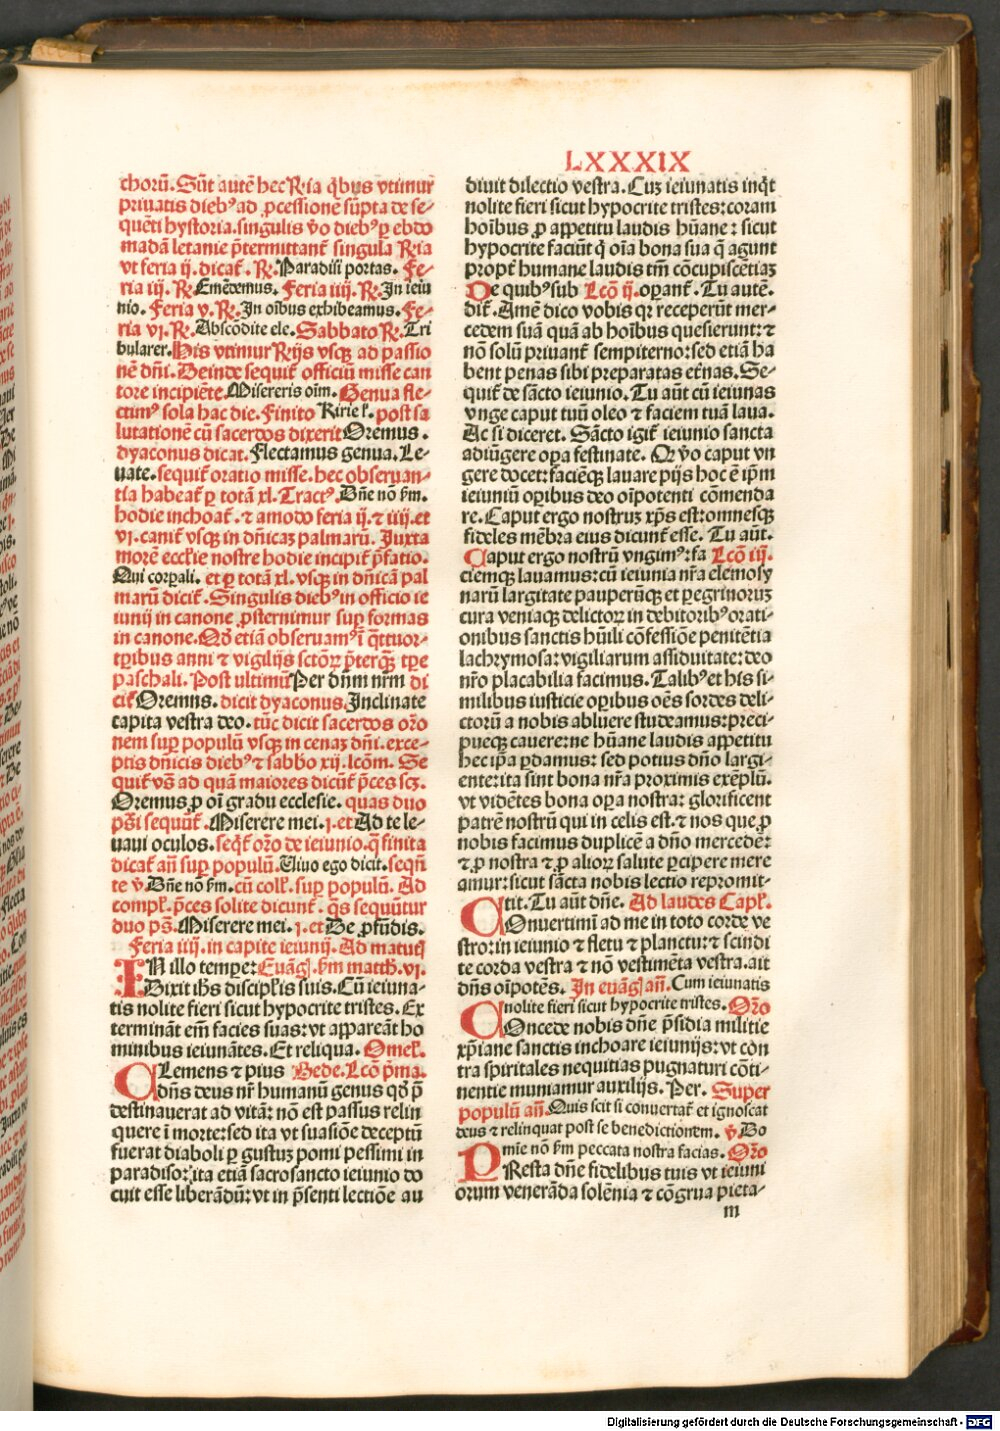 LXXXIX
chorū. Sūt autē hec Rͥia q̄bus vtimur
priuatis diebꝰ ad ꝓcessionē sūpta de se-
quēti hystoria. singulis v̄o diebꝰ ꝑ ebdo
madā letanie p̄termittant̄ singula Rͥia
vt feria ij. dicat̄. R̷. Paradisi portas. Fe-
ria iij. R̷. Emēdemus. Feria iiij. R̷. In ieiu
nio. Feria v. R̷. In oībus exhibeamus. Fe-
ria vj. R̷. Abscōdite ele. Sabbato R̷. Tri
bularer. His vtimur Rͥijs vsqꝫ ad passio
nē dn̄i. Deinde sequit̄ officiū misse can
tore incipiēte. Misereris oīm. Genua fle-
ctimꝰ sola hac die. Finito Kirie lˀ. post sa
lutationē cū sacerdos dixerit Oremus.
dyaconus dicat. Flectamus genua. Le-
uate. sequit̄ oratio misse. hec obseruan-
tia habeat̄ ꝑ totā xl. Tractꝰ. Dn̄e nō ẜm.
hodie inchoat̄. ⁊ amodo feria ij. ⁊ iiij. et
vj. canit̄ vsqꝫ in dn̄icaꝫ palmarū. Iuxta
morē eccl̄ie nostre hodie incipit̄ p̄fatio.
Qui corꝑali. et ꝑ totā xl. vsqꝫ in dn̄icā pal
marū dicit̄. Singulis diebꝰ in officio ie
iunij in canone ꝓsternimur suꝑ formas
in canone. Qd̄ etiā obseruamꝰ ī q̄ttuor-
tꝑibus anni ⁊ vigilijs sctōꝝ p̄terqꝫ tꝑe
paschali. Post ultimū Per dn̄m nr̄m di
cit̄ Oremus. dicit dyaconus Inclinate
capita vestra deo. tūc dicit sacerdos orō
nem suꝑ populū vsqꝫ in cenaꝫ dn̄i. exce-
ptis dn̄icis diebꝰ ⁊ sabbō xij. lcōm. Se
quit̄ v̄s ad quā maiores dicūt p̄ces scꝫ.
Oremus ꝓ oī gradu ecclesie. quas duo
ps̄i sequūt̄. Miserere mei. j. et Ad te le-
uaui oculos. seqt̄ orō de ieiunio. q̄ finita
dicat̄ an̄ suꝑ populū. Viuo ego dicit. seqn̄
te v̄. Dn̄e nō ẜm. cū collˀ. suꝑ populū. Ad
complˀ. p̄ces solite dicunt̄. q̄s sequūtur
duo ps̄. Miserere mei. j. et De ꝓfūdis.
Feria iiij. in capite ieiunij. Ad matuꝭ
IN illo tempe: Euāgˀ. ẜm matth̄. vj.
Dixit ih̄s discipl̄is suis. Cū ieiuna-
tis nolite fieri sicut hypocrite tristes. Ex
termināt em̄ facies suas: vt appareāt ho
minibus ieiunātes. Et reliqua. Omelˀ.
CLemens ⁊ pius Bede. Lcō p̄ma.
dn̄s deus nr̄ humanū genus qd̄ p̄
destinauerat ad vitā: nō est passus relin
quere ī morte: sed ita vt suasiōe deceptū
fuerat diaboli ꝑ gustuꝫ pomi pessimi in
paradiso: ita etiā sacrosancto ieiunio do
cuit esse liberādū: vt in p̄senti lectiōe au
diuit dilectio vestra. Cuꝫ ieiunatis inq̄t
nolite fieri sicut hypocrite tristes: coram
hoībus ꝓ appetitu laudis hūane: sicut
hypocrite faciūt q̄ oīa bona sua q̄ agunt
propt̄ humane laudis tm̄ cōcupiscētiaꝫ
De quibꝰ sub Lcō ij. oꝑant̄. Tu autē.
dit̄. Amē dico vobis qꝛ receperūt mer-
cedem suā quā ab hoībus quesierunt: ⁊
nō solū priuant̄ sempiterno: sed etiā ha
bent penas sibi preparatas et̄nas. Se-
quit̄ de sācto ieiunio. Tu aūt cū ieiunas
vnge caput tuū oleo ⁊ faciem tuā laua.
Ac si diceret. Sācto igit̄ ieiunio sancta
adiūgere oꝑa festinate. Qꝛ v̄o caput vn
gere docet: faciēqꝫ lauare pijs hoc ē ip̄m
ieiuniū oꝑibus deo oīpotenti cōmenda
re. Caput ergo nostruꝫ xp̄s est: omnesqꝫ
fideles mēbra eius dicunt̄ esse. Tu aūt.
Caput ergo nostrū vngimꝰ: fa Lcō iij.
ciemqꝫ lauamus: cū ieiunia nr̄a elemosy
narū largitate pauperūqꝫ et ꝑegrinoruꝫ
cura veniaqꝫ delictoꝝ in debitoribꝰ orati-
onibus sanctis hūili cōfessiōe penitētia
lachrymosa: vigiliarum assiduitate: deo
nr̄o placabilia facimus. Talibꝰ et his si-
milibus iusticie oꝑibus oēs sordes deli-
ctorū a nobis abluere studeamus: preci-
pueqꝫ cauere: ne hūane laudis appetitu
hec ip̄a ꝑdamus: sed potius dn̄o largi-
ente: ita sint bona nr̄a proximis exēplū.
vt vidētes bona oꝑa nostra: glorificent
patrē nostrū qui in celis est. ⁊ nos que ꝓ
nobis facimus duplicē a dn̄o mercedē:
⁊ ꝓ nostra ⁊ ꝓ alioꝝ salute ꝑcipere mere
amur: sicut sācta nobis lectio repromit-
tit. Tu aūt dn̄e. Ad laudes Caplˀ.
COnuertimī ad me in toto corde ve
stro: in ieiunio ⁊ fletu ⁊ planctu: ⁊ scindi
te corda vestra ⁊ nō vestimēta vestra. ait
dn̄s oīpotēs. In euāgˀ an̄. Cum ieiunatis
nolite fieri sicut hypocrite tristes. Orō
COncede nobis dn̄e p̄sidia militie
xp̄iane sanctis inchoare ieiunijs: vt con
tra spiritales nequitias pugnaturi cōti-
nentie muniamur auxilijs. Per. Super
populū an̄. Quis scit si conuertat̄ et ignoscat
deus ⁊ relinquat post se benedictionem. v̄. Do
mie nō ẜm peccata nostra facias. Orō
PResta dn̄e fidelibus tuis vt ieiuni
orum venerāda solēnia ⁊ cōgrua pieta-
m
Digitalisierung gefördert durch die Deutsche Forschungsgemeinschaft - DFG